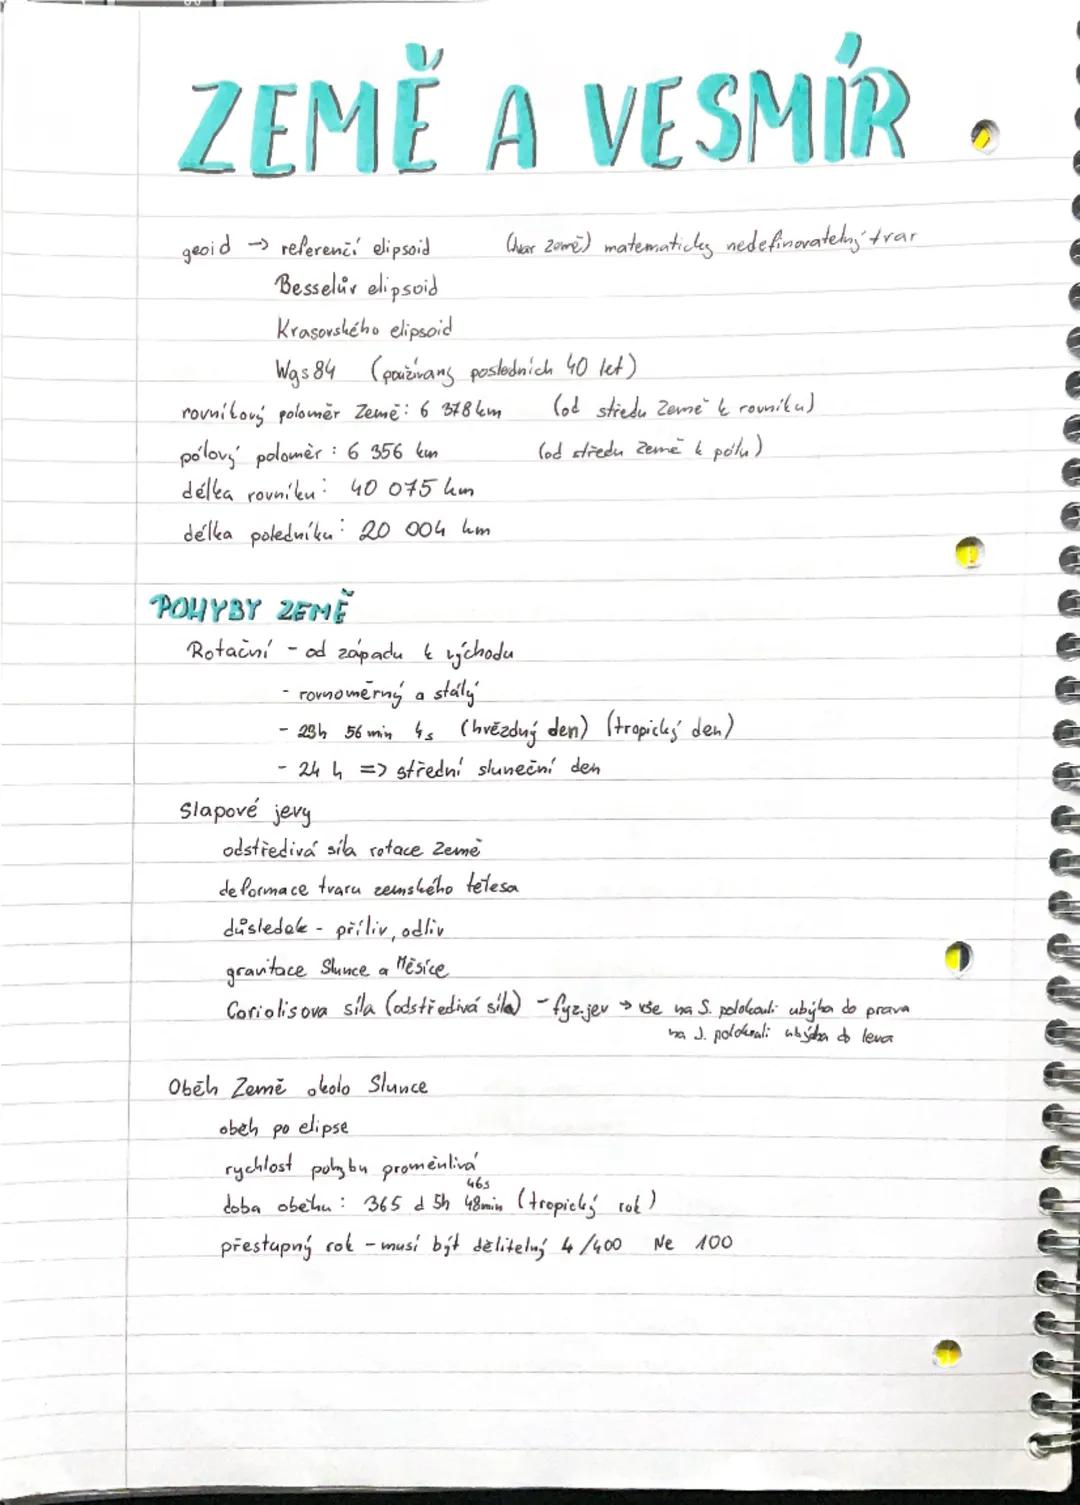 ZEMĚ A VESMÍR
geoid → referenčí elipsoid (tvar Země) matematicky nedefinovatelný tvar
Besselův elipsoid
Krasovského elipsoid
Wgs84 (používaný posledních 40 let)
rovníkový poloměr Země: 6 378 km (od středu Země k rovníku)
pólový poloměr: 6 356 km (od středu Země k pólu)
délka rovníku: 40 075 km
délka poledníku: 20 004 km
POHYBY ZEMĚ
Rotační - od západu k východu
- rovnoměrný a stálý
- 23h 56 min 4s (hvězdný den) (tropický den)
- 24 h => střední sluneční den
Slapové jevy
odstředivá síla rotace Země
deformace tvaru zemského tělesa
důsledek - příliv, odliv
gravitace Slunce a Měsíce
Coriolisova síla (odstředivá síla) - fyz.jev → vše na S. polokouli ubýha do prava
na J. polokouli ubýha do leva
Oběh Země okolo Slunce
oběh po elipse
rychlost pohybu proměnlivá
doba oběhu: 365 d 5h 48min 46s (tropický rok)
přestupný rok - musí být dělitelný 4/400 Ne 100